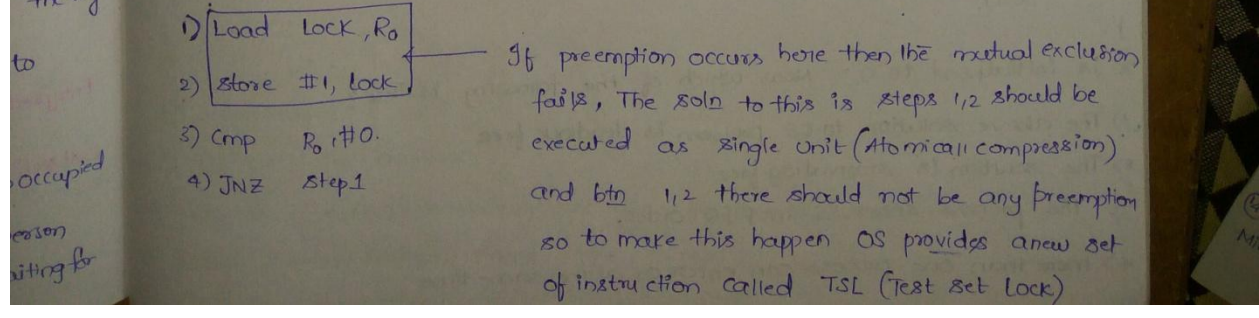 to
occupied
erson
aiting for
1) Load Lock, R0
2) store #1, lock
3) Cmp R0, #0.
4) JNZ step1
If preemption occurs here then the mutual exclusion
fails, The soln to this is steps 1,2 should be
executed as single unit (Atomicall compression)
and btn 1,2 there should not be any preemption
so to make this happen OS provides a new set
of instruction called TSL (Test set Lock)